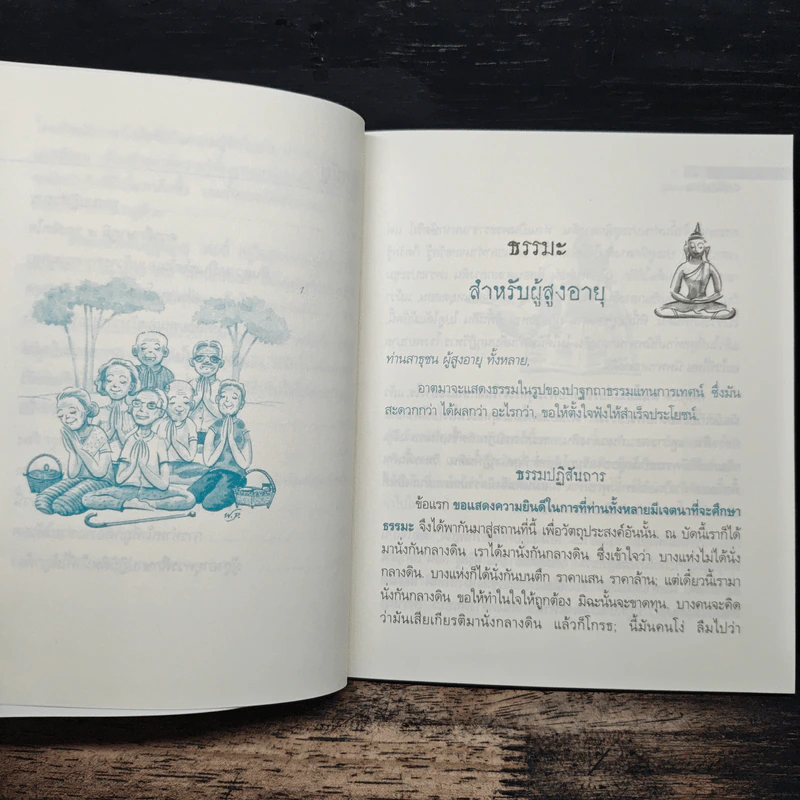 ธรรมะ
สำหรับผู้สูงอายุ
ท่านสาธุชน ผู้สูงอายุ ทั้งหลาย,
อาตมาจะแสดงธรรมในรูปของปาฐกถาธรรมแทนการเทศน์ ซึ่งมัน
สะดวกกว่า ได้ผลกว่า อะไรกว่า, ขอให้ตั้งใจฟังให้สำเร็จประโยชน์.
ธรรมปฏิสันถาร
ข้อแรก ขอแสดงความยินดีในการที่ท่านทั้งหลายมีเจตนาที่จะศึกษา
ธรรมะ จึงได้พากันมาสู่สถานที่นี้ เพื่อวัตถุประสงค์อันนั้น. ณ บัดนี้เราก็ได้
มานั่งกันกลางดิน เราได้มานั่งกันกลางดิน ซึ่งเข้าใจว่า บางแห่งไม่ได้นั่ง
กลางดิน. บางแห่งก็ได้นั่งกันบนตึก ราคาแสน ราคาล้าน; แต่เดี๋ยวนี้เรามา
นั่งกันกลางดิน ขอให้ทำในใจให้ถูกต้อง มิฉะนั้นจะขาดทุน. บางคนจะคิด
ว่ามันเสียเกียรติมานั่งกลางดิน แล้วก็โกรธ; นี้มันคนโง่ ลืมไปว่า
พ.ธ.